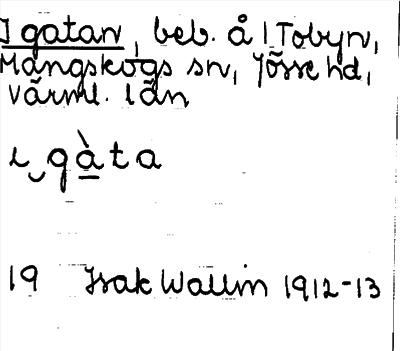 I gatan, beb. å 1 Tobyn,
Mangskogs sn, Jösse hd,
Värml. län
ɩ‿gàta
19 Isak Wallin 1912-13